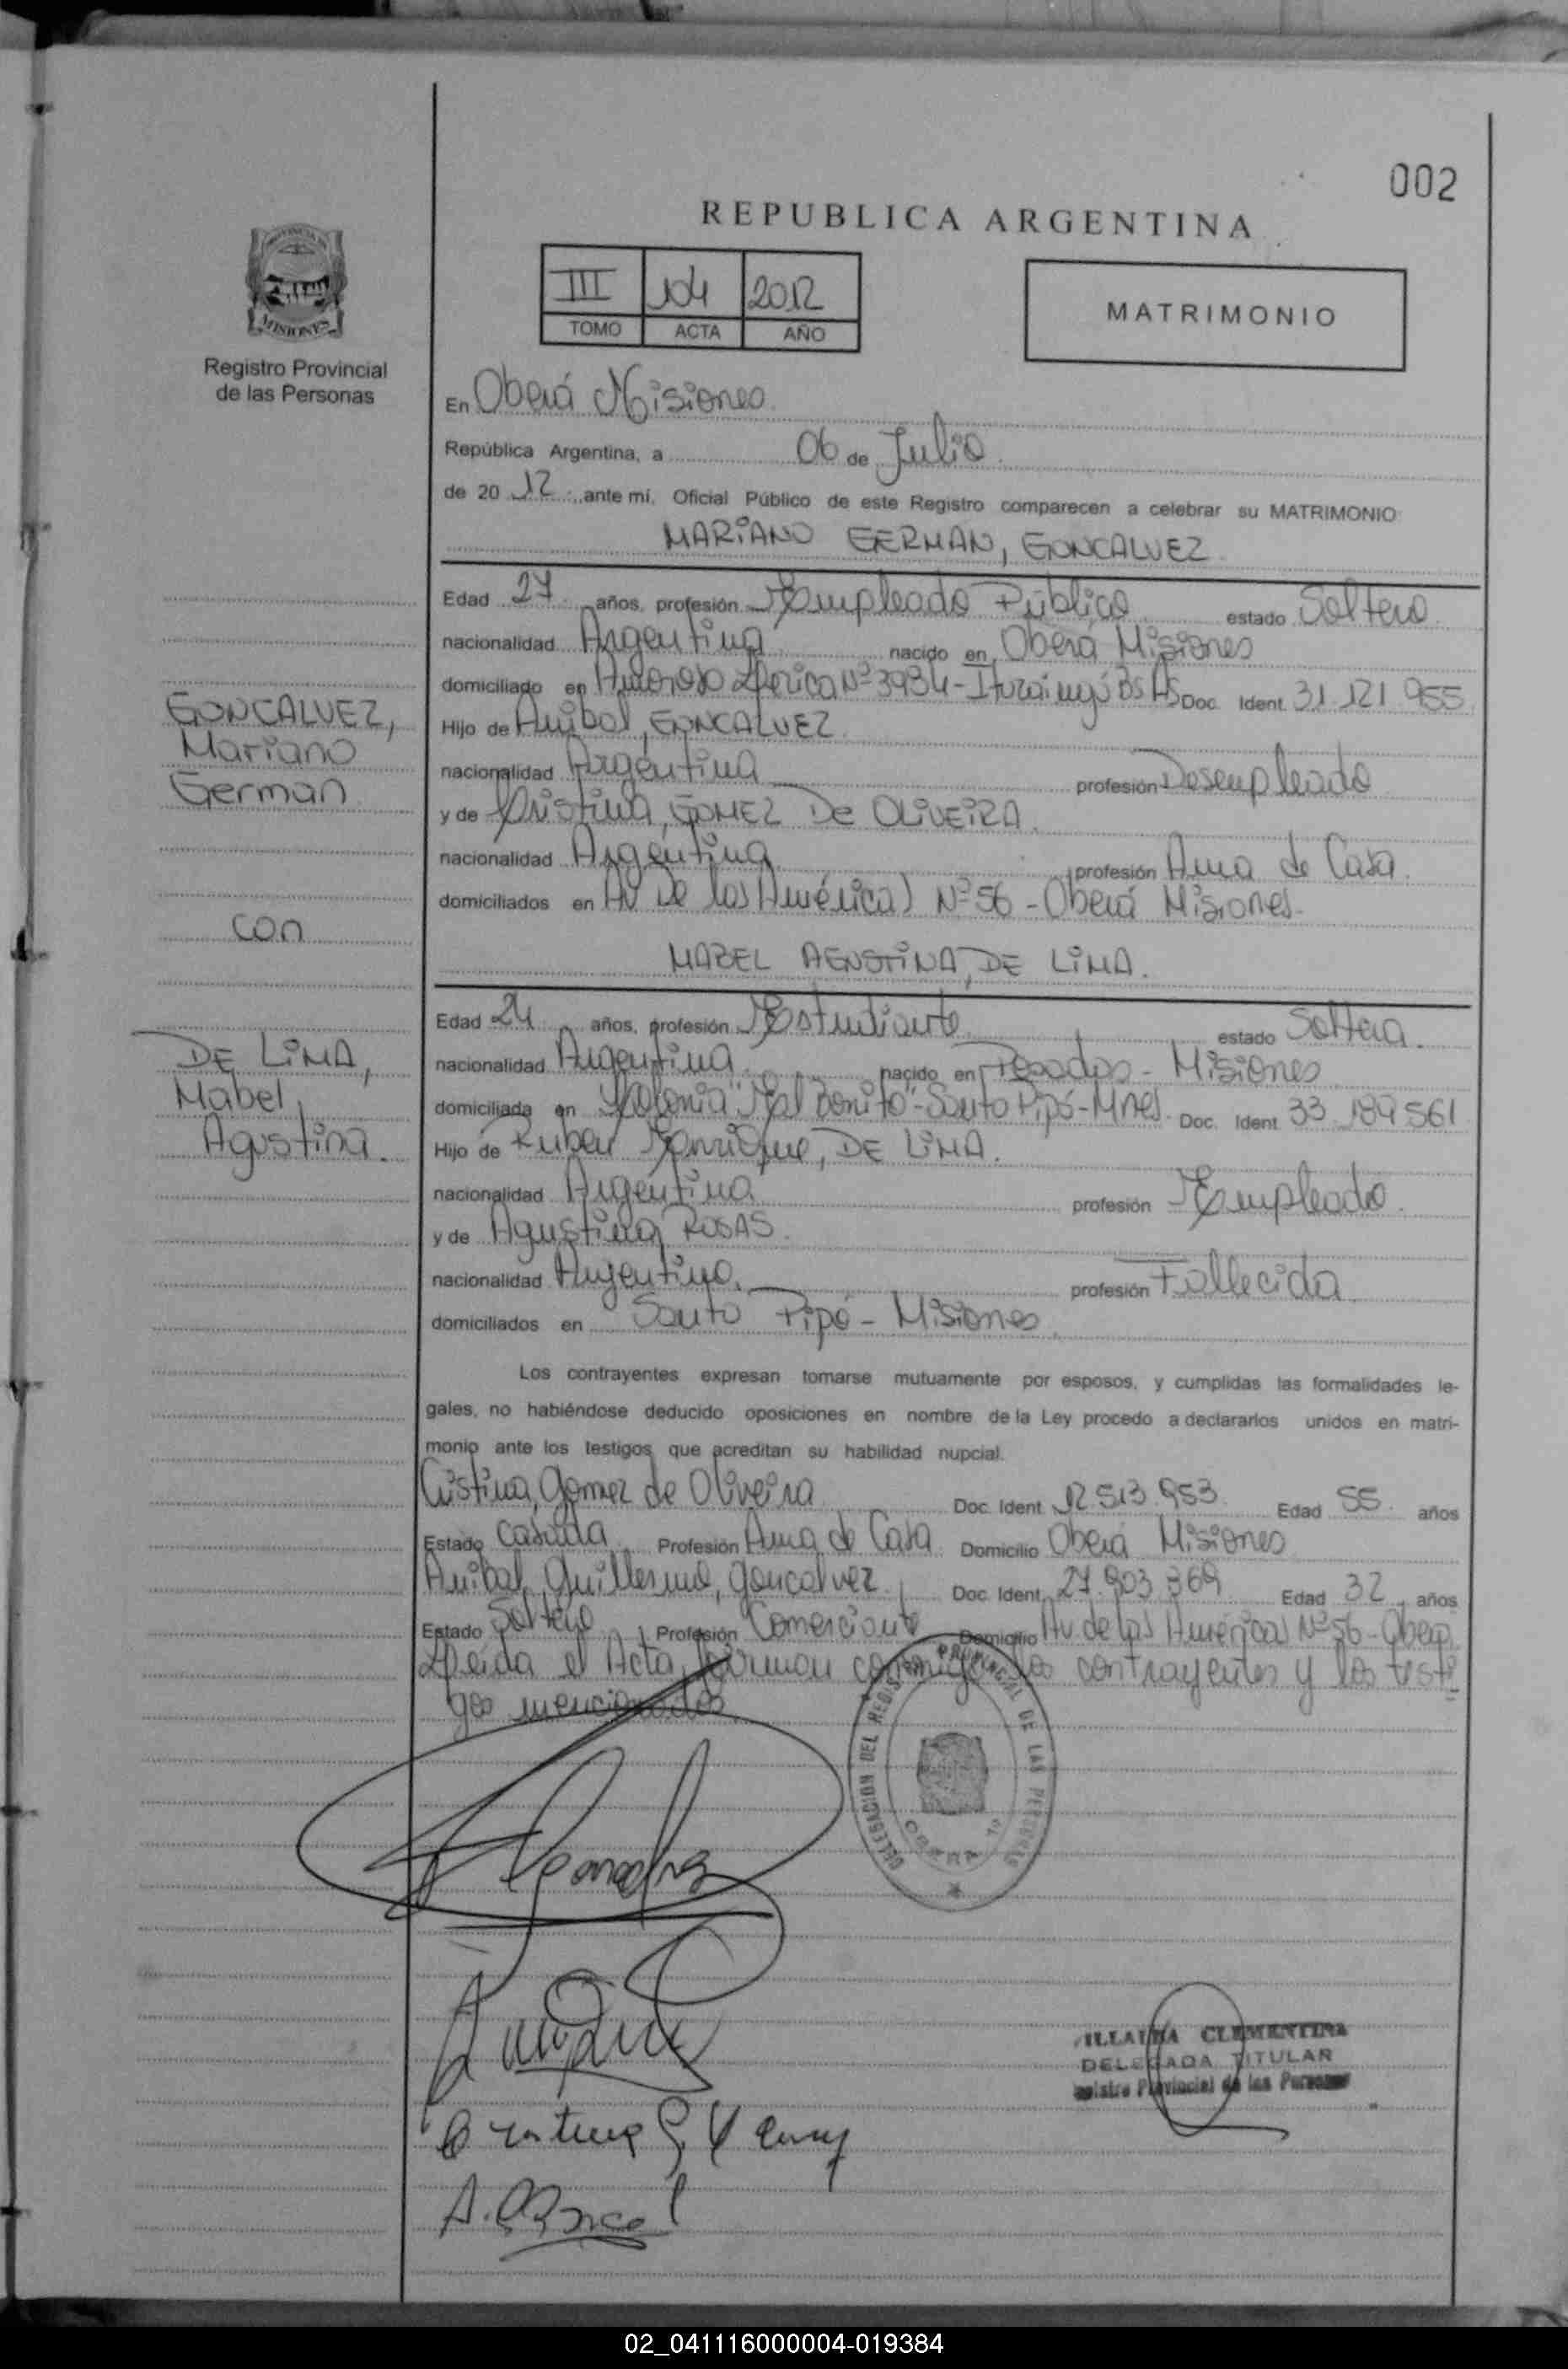 002
REPUBLICA ARGENTINA
III 104 2012
TOMO ACTA AÑO
MATRIMONIO
MISIONES
Registro Provincial
de las Personas
En Oberá Misiones
República Argentina, a 06 de Julio
de 20 12 ante mí, Oficial Público de este Registro comparecen a celebrar su MATRIMONIO
MARIANO GERMAN, GONCALVEZ
Edad 27 años, profesión Empleado Público estado Soltero
nacionalidad Argentina nacido en Oberá Misiones
domiciliado en Amoroso Nº 3934 - Ituzaingó Bs As Doc. Ident. 31.121.955
Hijo de Anibal, GONCALVEZ
nacionalidad Argentina profesión Desempleado
y de Cristina, GOMEZ De OLIVEIRA
nacionalidad Argentina profesión Ama de Casa
domiciliados en Av De las Américas Nº 56 - Oberá Misiones.
MABEL AGUSTINA, DE LIMA.
Edad 24 años, profesión Estudiante estado Soltera.
nacionalidad Argentina nacido en Posadas - Misiones
domiciliada en Colonia "Bonito" - Santo Pipó - Mnes. Doc. Ident. 33.189.561
Hijo de Ruben Henrique, DE LIMA.
nacionalidad Argentina profesión Empleado
y de Agustina, ROSAS
nacionalidad Argentina profesión Fallecida
domiciliados en Santo Pipó - Misiones
GONCALVEZ,
Mariano
German
con
DE LIMA,
Mabel,
Agustina.
Los contrayentes expresan tomarse mutuamente por esposos, y cumplidas las formalidades le-
gales, no habiéndose deducido oposiciones en nombre de la Ley procedo a declararlos unidos en matri-
monio ante los testigos que acreditan su habilidad nupcial.
Cristina, Gomez de Oliveira Doc. Ident. 12.513.953 Edad 55 años
Estado Casada Profesión Ama de Casa Domicilio Oberá Misiones
Anibal, Guillermo, Goncalvez Doc. Ident. 27.903.369 Edad 32 años
Estado Soltero Profesión Comerciante Domicilio Av de las Américas Nº 56 - Oberá
Leída el Acta, firman conmigo los contrayentes y los testi-
gos mencionados
DELEGACION DEL REGISTRO PROVINCIAL DE LAS PERSONAS
OBERA
CLEMENTINA
DELEGADA TITULAR
Provincial de las Personas
02_041116000004-019384